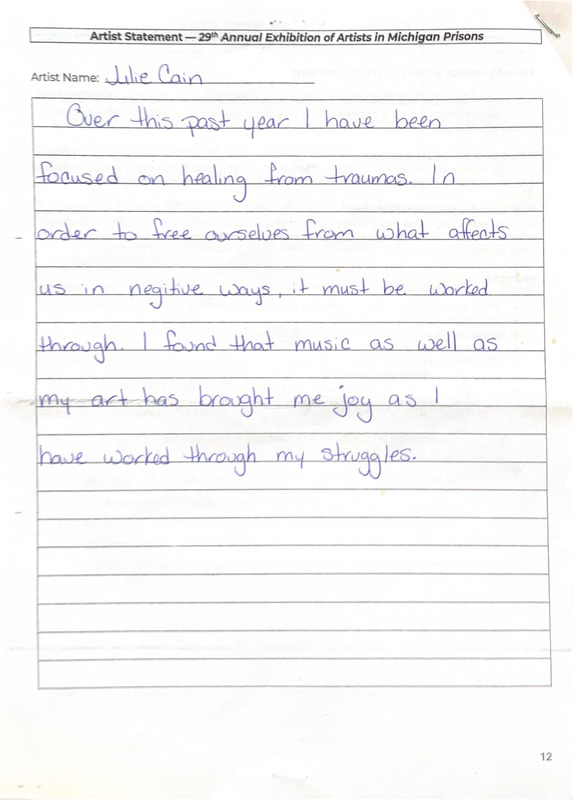 Artist Statement — 29th Annual Exhibition of Artists in Michigan Prisons
Artist Name: Julie Cain
Over this past year I have been
focused on healing from traumas. In
order to free ourselves from what affects
us in negitive ways, it must be worked
through. I found that music as well as
my art has brought me joy as I
have worked through my struggles.
12